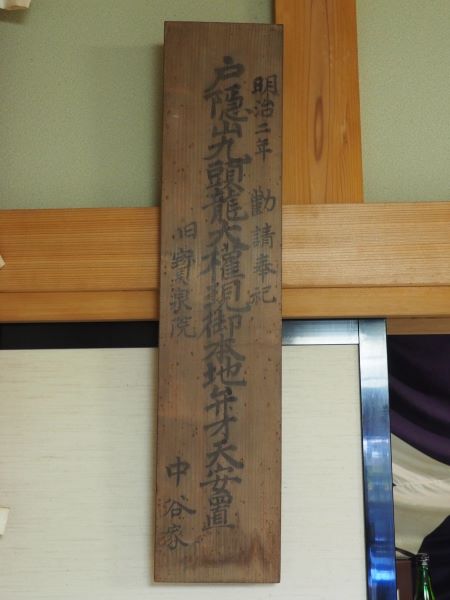 明治二年 勸請奉祀
戸隠山九頭龍大権現御本地弁才天安置
旧寳泉院
中谷家